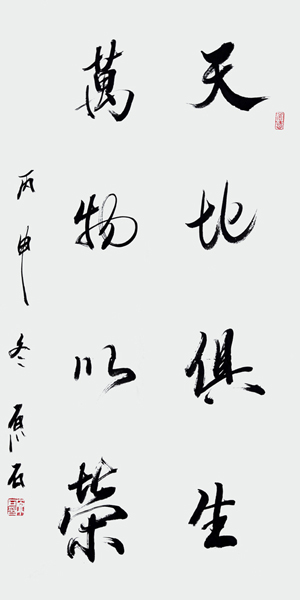 天地俱生
萬物以榮
丙申冬